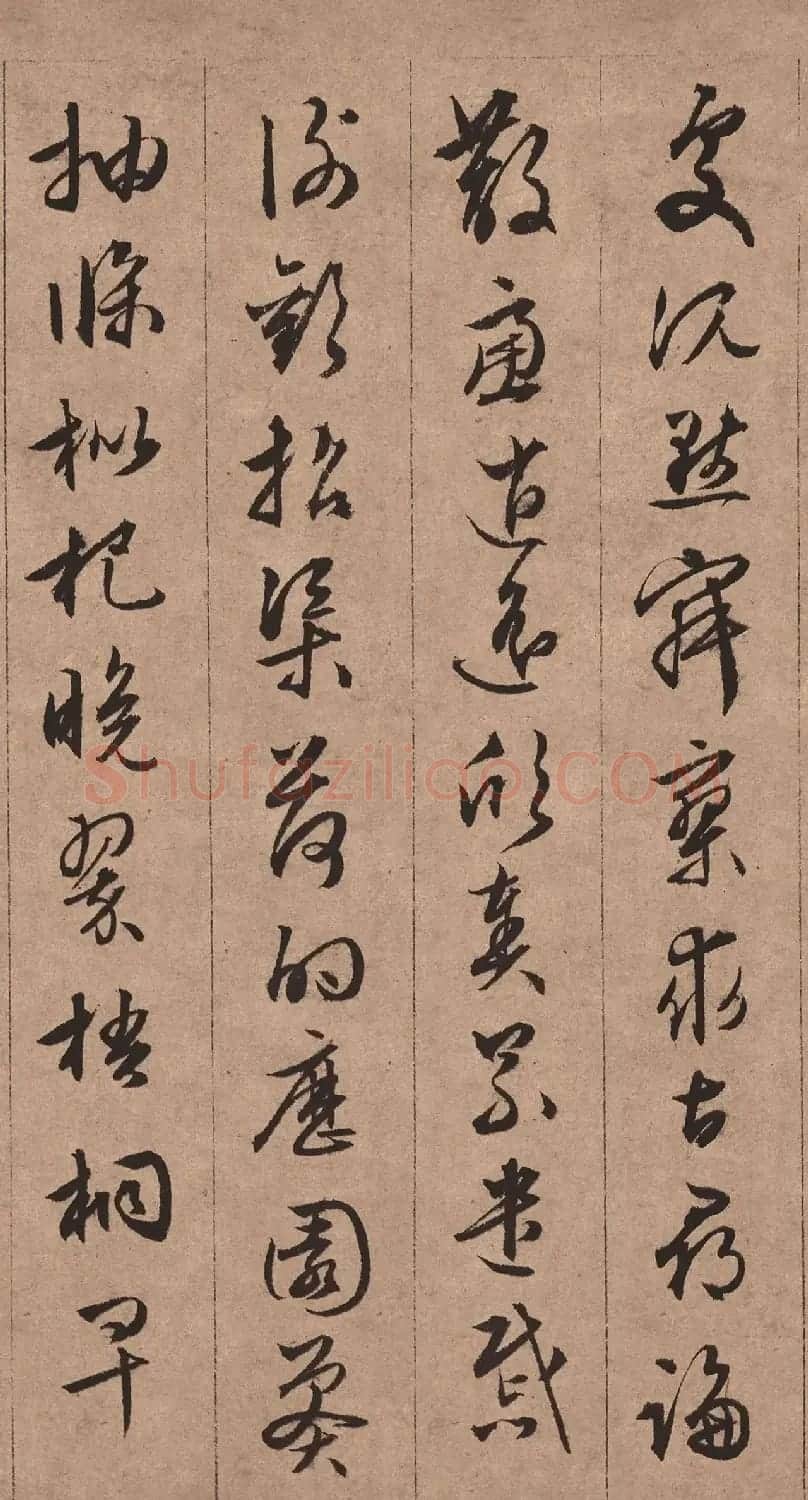 處沉默寂寥求古尋論
散慮逍遙欣奏累遣慼
謝歡招渠荷的歷園莽
抽條枇杷晚翠梧桐早
Shufaziliao.COM